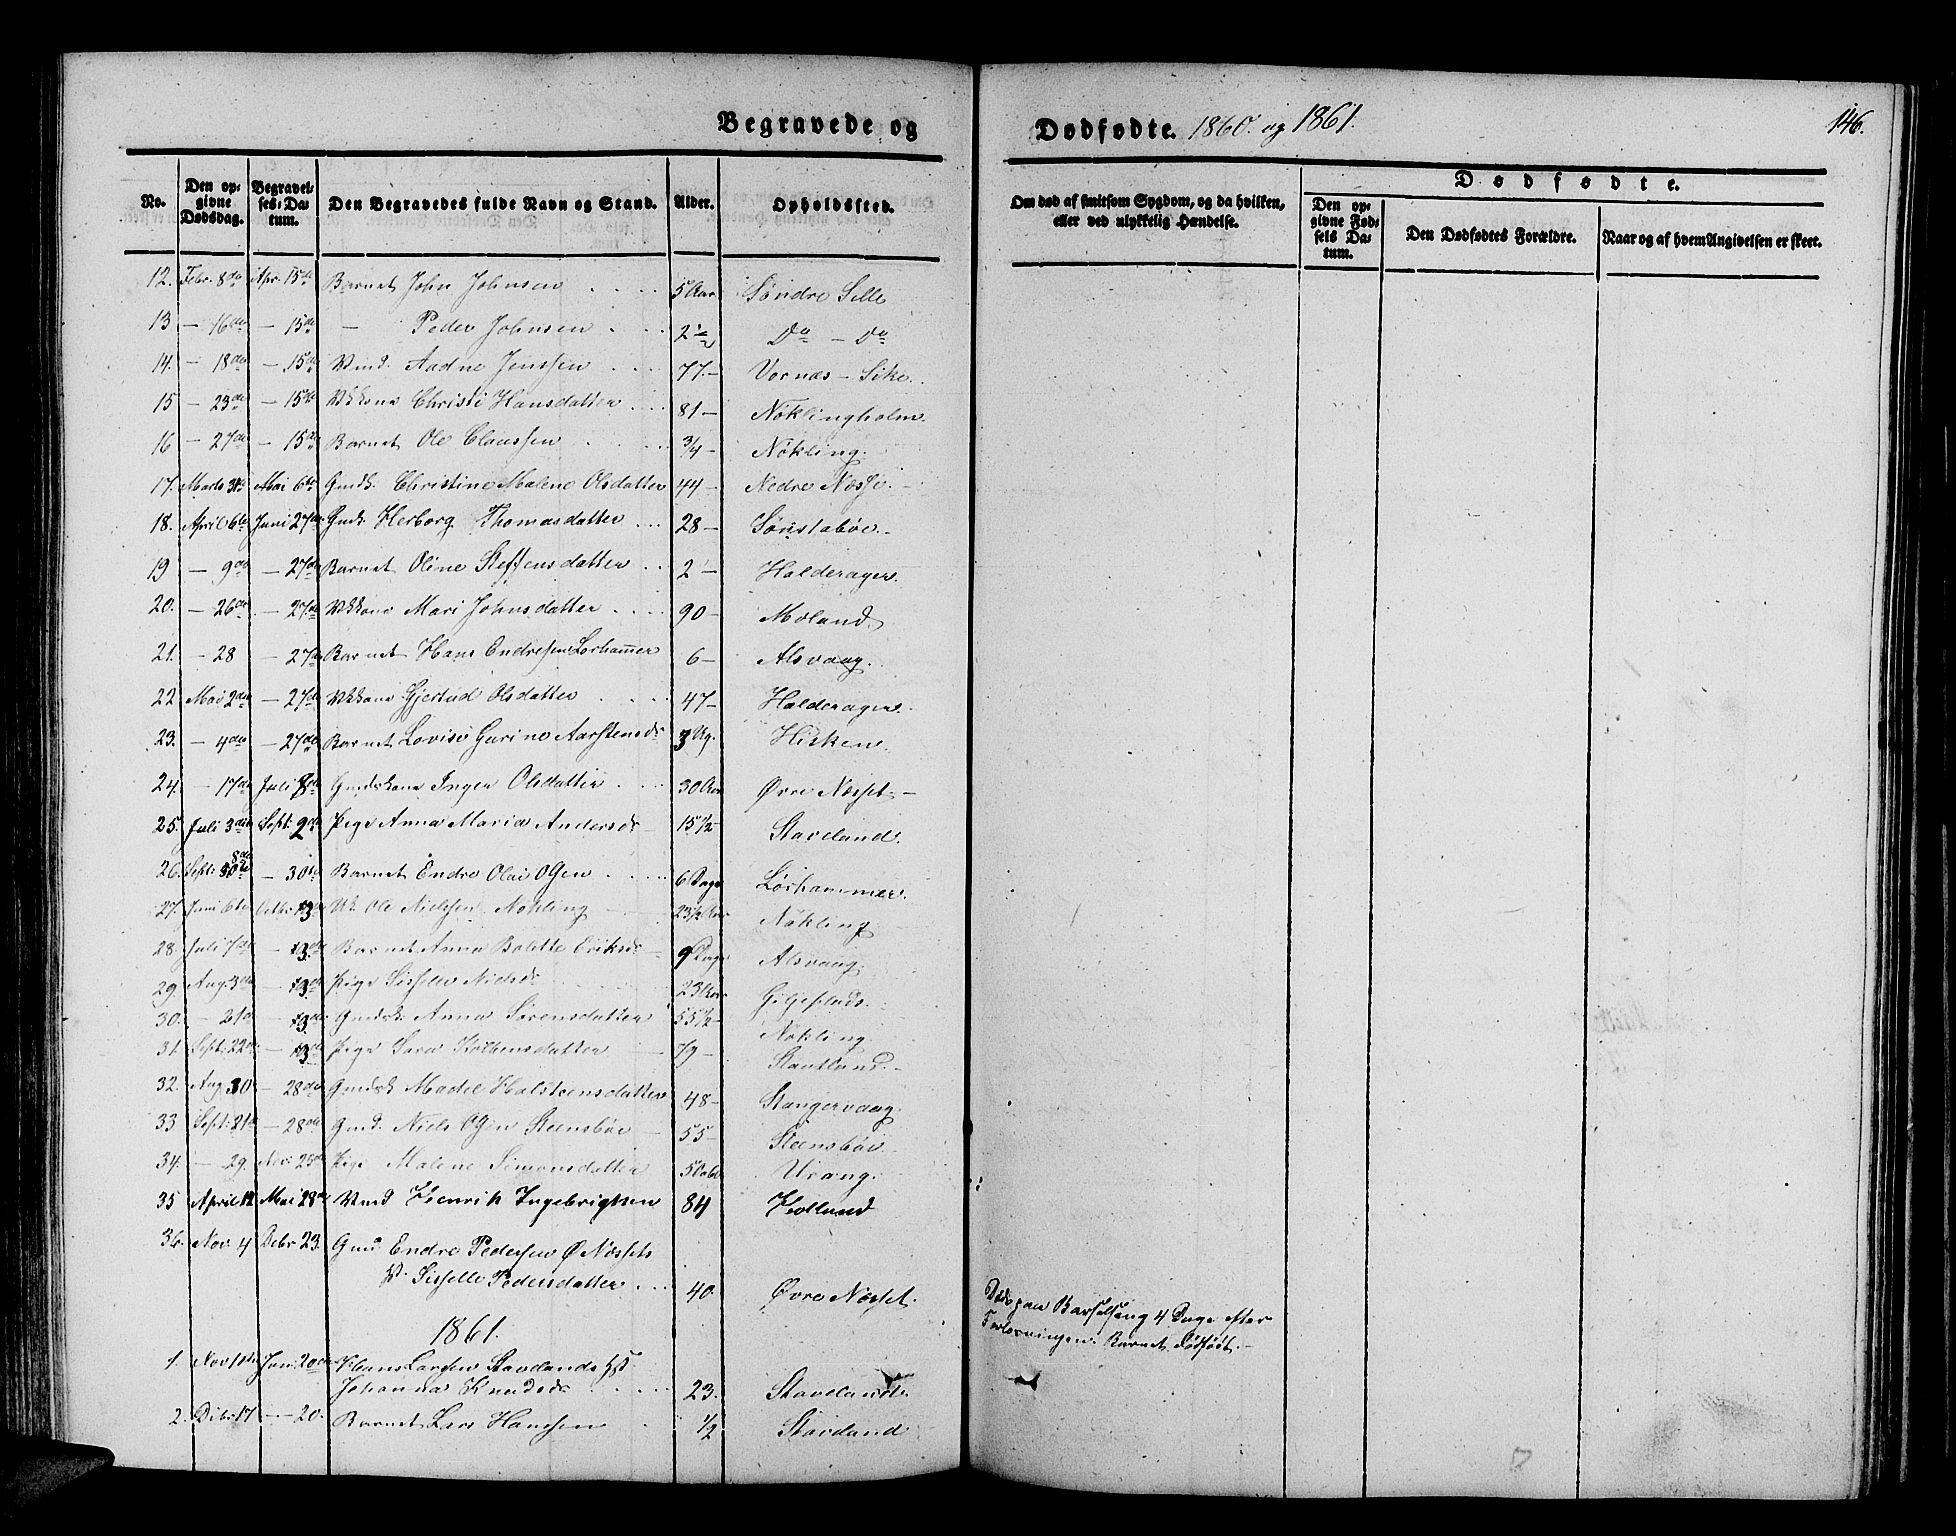 Begravede og
Dødfødte. 1860. og 1861.
146.
No.
Den op-
givne
Dødsdag.
Begravel-
ses-Da-
tum.
Den Begravedes fulde Navn og Stand.
Alder.
Opholdssted.
Om død af smitsom Sygdom, og da hvilken,
eller ved ulykkelig Hændelse.
Dødfødte.
Den op-
givne Fød-
sels Da-
tum.
Den Dødfødtes Forældre.
Naar og af hvem Angivelsen er skeet.
12. Febr. 8de Apr. 15de Barnet John Johnsen 5 Aar Søndre Selle
13 — 16de — 15de — Peder Johnsen 2 ½ Do — Do
14. — 18de — 15de Aadne Jenssen 77 — Vornæs-Sike.
15 — 23de — 15de Christi Hansdatter 81 — Nøklingholm
16 — 27de — 15de Barnet Ole Claussen 3/4 — Nøkling.
17. Marts 31te Mai 6te Gmdk. Christine Malene Olsdatter 44 — Nedre Nøsse.
18. April 6te Juni 27de Gmdk. Herborg Thomasdatter 28 — Sønstabøe.
19 — 9de — 27de Barnet Oline Steffensdatter 2 — Halderager.
20. — 26de — 27de Mari Johnsdatter 90 — Moland
21. — 28 — 27de Barnet Hans Endresen Lorhammer 6 — Alsvaag.
22 Mai 2den — 27de Gjertrud Olsdatter 47 — Halderager.
23. — 4de — 27de Barnet Lovise Gurine Aarstensdr 3 Ug. Hisken.
24. — 17de Juli 8de Gmdskone Inger Olsdatter 30 Aar Øvre Nøsset —
25. Juli 3die Sept. 2den Pige Anna Maria Andersdr 15 1/2 Stavland.
26. Sept. 8de — 30te Barnet Endre Olai Olsen 6 Dage Lørhammer.
27. Juni 6te Octbr. 13de Ole Nielsen Nøkling 23 1/2 Aar Nøkling
28. Juli 7de — 13de Barnet Anna Bolette Eriksdr 9 Dage Alsvaag.
29. Aug. 3de — 13de Pige Sisselle Nielsdr 23 Aar
30. — 21de — 13de Gmdsk. Anna Sørensdatter 55 1/2 — Nøkling.
31. Sept. 22de — 13de Pige Sara Kolbensdatter — Stavland.
32. Aug. 30 — 28de Gmdsk Madel Halsteensdatter 48 — Stangervaag.
33 Sept. 21de — 28de Gmd. Niels Olsen Steensbøe 55 — Steensbøe
34. — 29. Nov. 25de Pige Malene Simonsdatter 5 Urang.
35 April 12 Mai 28de Henrik Ingebrigtsen 84
36. Nov. 4 Debr 23. Gmd Endre Pedersen Ø Nøssets
H. Sisselle Pedersdatter 40 Øvre Nøsset.
Døde paa Barselseng 4 Dage efter
Forløsningen. Barnet dødfødt. —
1861.
1. Nov 10de Jan. 20de Hans Larsen Stavelands H
Johanna Knudsdr 23. Stavelande
2. Debr. 17 — 20. Barnet Lars Hansen 1/2 Stavland